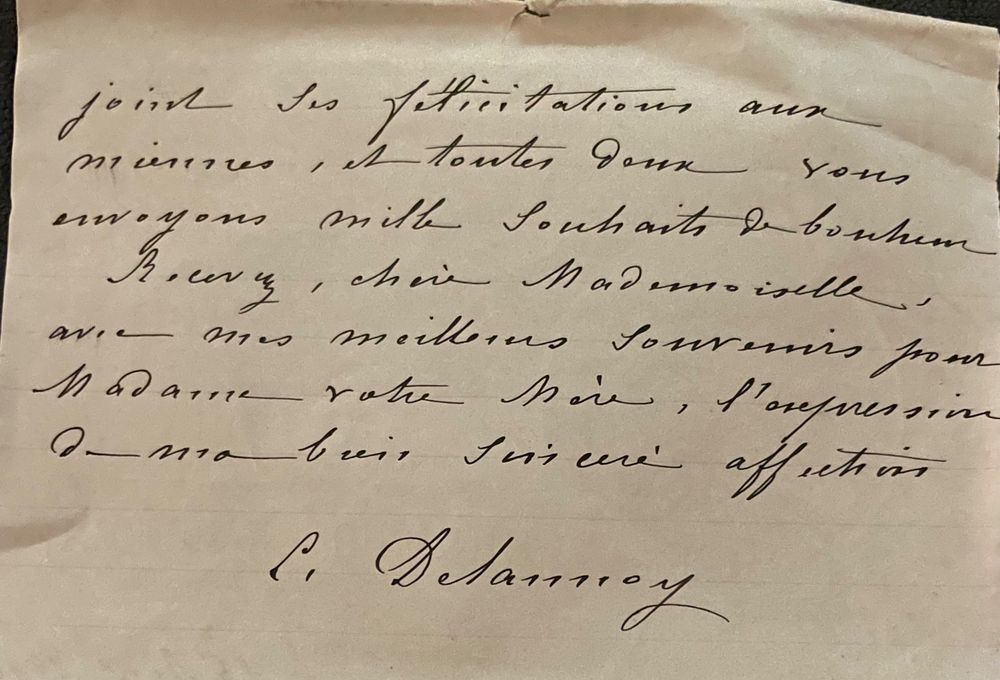 joint ses félicitations aux
miennes, et toutes deux vous
envoyons mille souhaits de bonheur
Recevez, chère Mademoiselle,
avec mes meilleurs souvenirs pour
Madame votre Mère, l'expression
de ma bien sincère affection
C. Delannoy